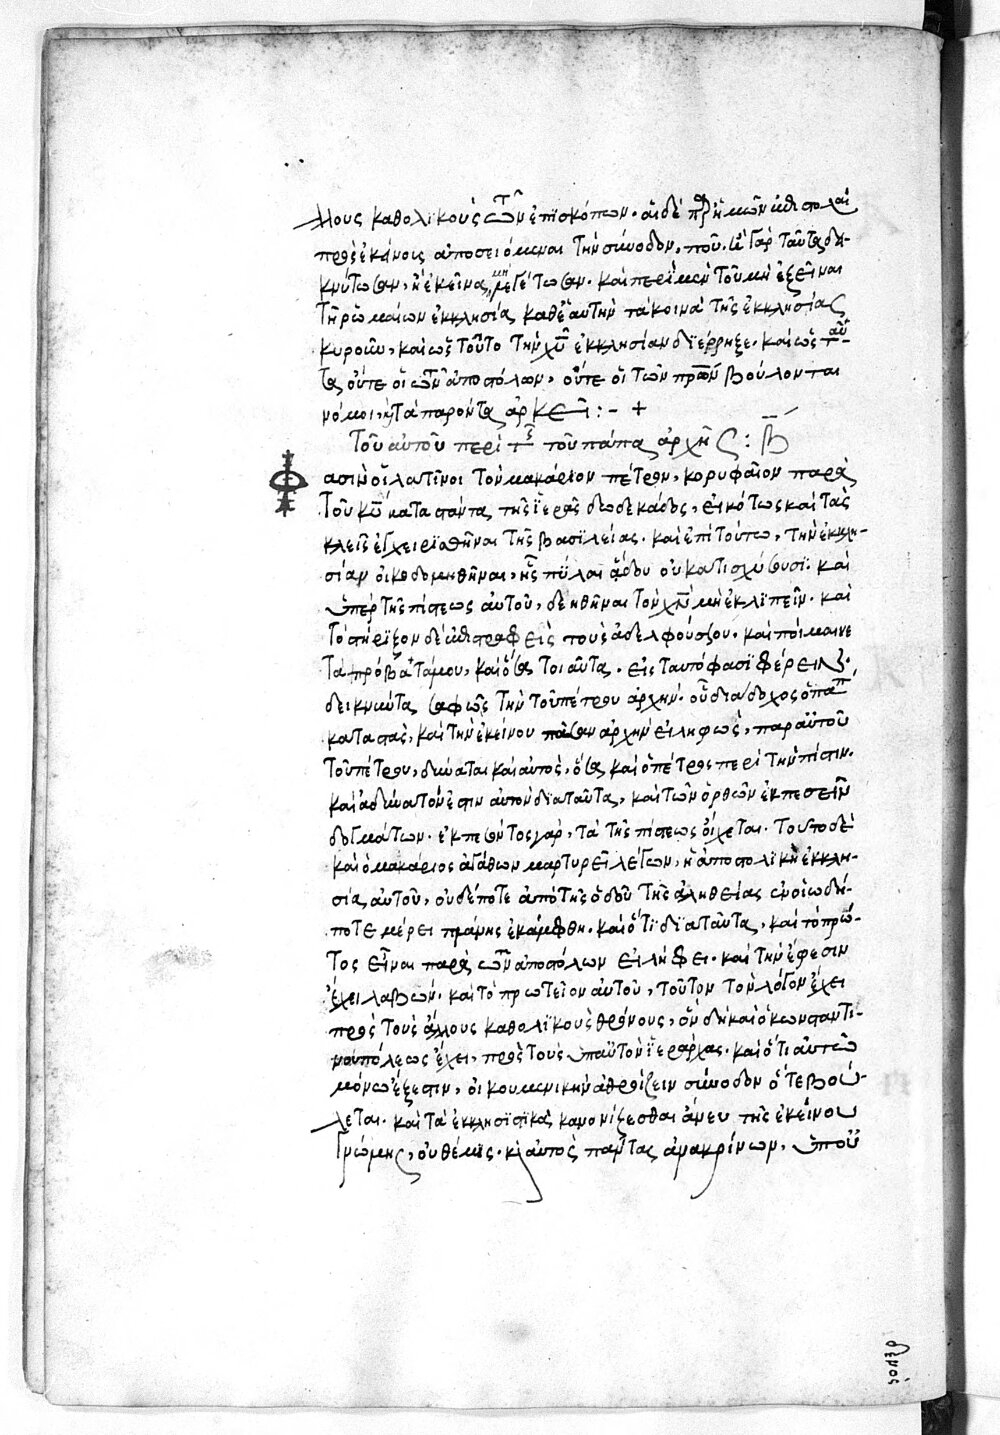 λλους καθολικοὺς τῶν ἐπισκόπων. αἱ δὲ πρὸ ἡμῶν ἐπιστολαὶ
πρὸς ἐκείνοις ἀποσειόμεναι τὴν σύνοδον, ποῦ. εἰ γὰρ ταῦτα δει-
κνύτωσαν, ἢ ἐκεῖνα μὴ λεγέτωσαν. καὶ περὶ μὲν τοῦ μὴ ἐξεῖναι
τῇ ῥωμαίων ἐκκλησίᾳ καθ' ἑαυτὴν τὰ κοινὰ τῆς ἐκκλησίας
κυροῦν, καὶ ὡς τοῦτο τὴν χυ ἐκκλησίαν διέρρηξε. καὶ ὡς ταῦ-
τα οὔτε οἱ τῶν ἀποστόλων, οὔτε οἱ τῶν πρων βούλονται
νόμοι, τὰ παρόντα ἀρκεῖ :- +
Τοῦ αὐτοῦ περὶ τῆς τοῦ πάπα ἀρχῆς : Β
Φασὶν οἱ λατῖνοι τὸν μακάριον πέτρον, κορυφαῖον παρὰ
τοῦ κυ καταστάντα τῆς ἱερᾶς δωδεκάδος, εἰκότως καὶ τὰς
κλεῖς ἐγχειρισθῆναι τῆς βασιλείας. καὶ ἐπὶ τούτω, τὴν ἐκκλη-
σίαν οἰκοδομηθῆναι, ἧς πύλαι ἅδου οὐ κατισχύσουσι. καὶ
ὑπὲρ τῆς πίστεως αὐτοῦ, δεηθῆναι τὸν χν μὴ ἐκλιπεῖν. καὶ
τὸ στήριξον δὲ ἐπιστραφεὶς τοὺς ἀδελφούς σου. καὶ ποίμαινε
τὰ πρόβατά μου, καὶ ὅσα τοιαῦτα. εἰς ταυτό φασι φέρειν.
δεικνύντα σαφῶς τὴν τοῦ πέτρου ἀρχήν. οὗ διάδοχος ὁ πάπ
καταστὰς, καὶ τὴν ἐκείνου πᾶσαν ἀρχὴν εἰληφὼς, παρ' αὐτοῦ
τοῦ πέτρου, δύναται καὶ αὐτὸς, ὅσα καὶ ὁ πέτρος περὶ τὴν πίστιν.
καὶ ἀδύνατόν ἐστιν αὐτὸν διὰ ταῦτα, καὶ τῶν ὀρθῶν ἐκπεσεῖν
δογμάτων. ἐκπεσόντος γὰρ, τὰ τῆς πίστεως οἴχεται. τοῦτο δὲ
καὶ ὁ μακάριος ἀγάθων μαρτυρεῖ λέγων, ἡ ἀποστολικὴ ἐκκλη-
σία αὐτοῦ, οὐδέποτε ἀπὸ τῆς ὁδοῦ τῆς ἀληθείας ἐν οἱωδή-
ποτε μέρει πλάνης ἐκάμφθη. καὶ ὅτι διὰ ταῦτα, καὶ τὸ πρῶ-
τος εἶναι παρὰ τῶν ἀποστόλων εἰλήφει. καὶ τὴν ἔφεσιν
ἔχει λαβών. καὶ τὸ πρωτεῖον αὐτοῦ, τοῦτον τὸν λόγον ἔχει
πρὸς τοὺς ἄλλους καθολικοὺς θρόνους, ὃν δὴ καὶ ὁ κωνσταντι-
νουπόλεως ἔχει, πρὸς τοὺς ὑπ' αὐτὸν ἱεράρχας. καὶ ὅτι αὐτῶ
μόνω ἔξεστιν, οἰκουμενικὴν ἀθροίζειν σύνοδον ὅτε βού-
λεται. καὶ τὰ ἐκκλησιαστικὰ κανονίζεσθαι ἄνευ τῆς ἐκείνου
γνώμης, οὐ θέμις. κ αὐτὸς πάντας ἀνακρίνων, ὑπ' οὐ